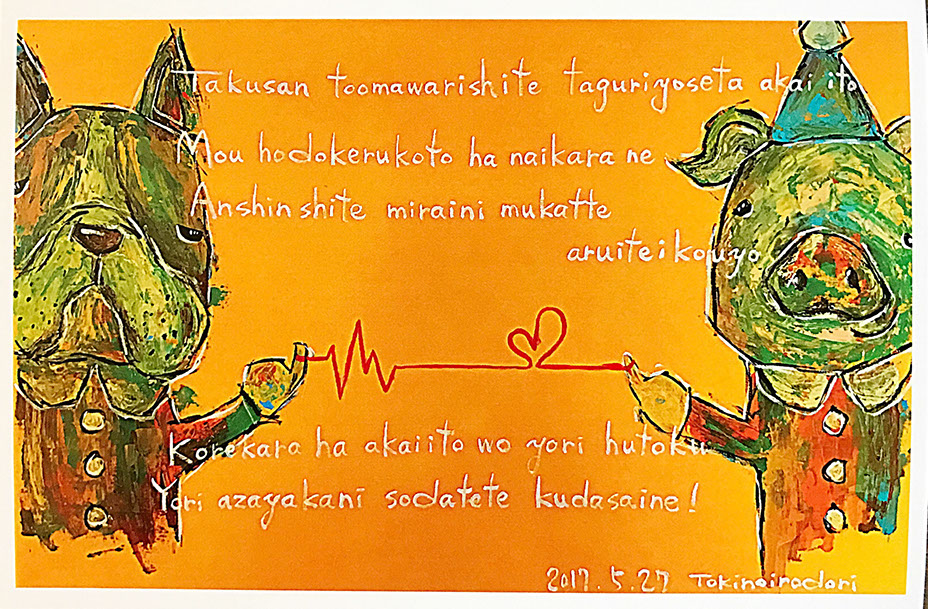 Takusan toomawarishite taguriyoseta akai ito
Mou hodokerukoto ha naikara ne
Anshin shite miraini mukatte
aruiteikouyo
Korekara ha akaiito wo yori hutoku
Yori azayakani sodatete kudasaine!
2017.5.27 Tokinoirodori